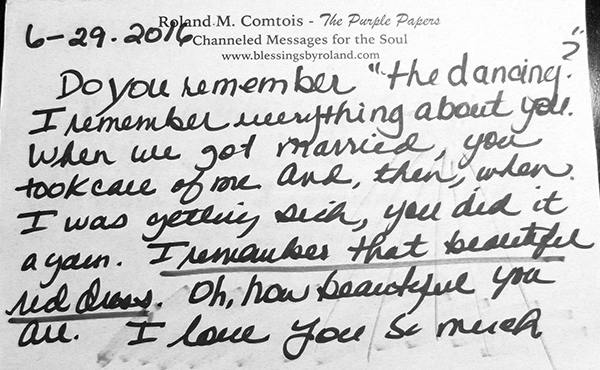 Roland M. Comtois - The Purple Papers
6-29-2016
Channeled Messages for the Soul
www.blessingsbyroland.com
Do you remember "the dancing?"
I remember everything about you.
When we got married, you
took care of me. And, then, when
I was getting sick, you did it
again. I remember that beautiful
red dress. Oh, how beautiful you
are. I love you so much